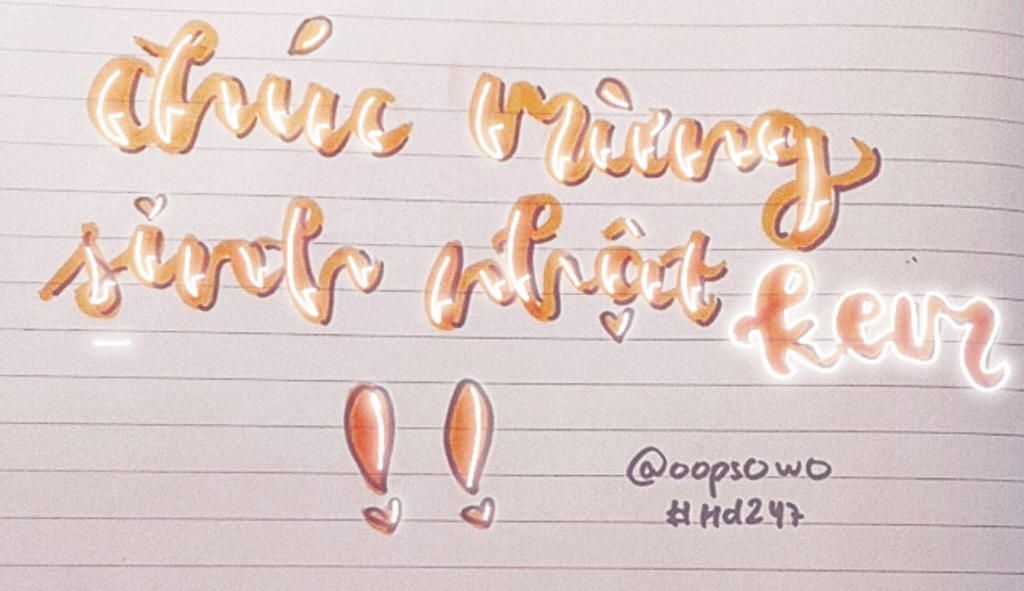 chúc mừng
sinh nhật kevr
!!
@oopsowo
#Hd247